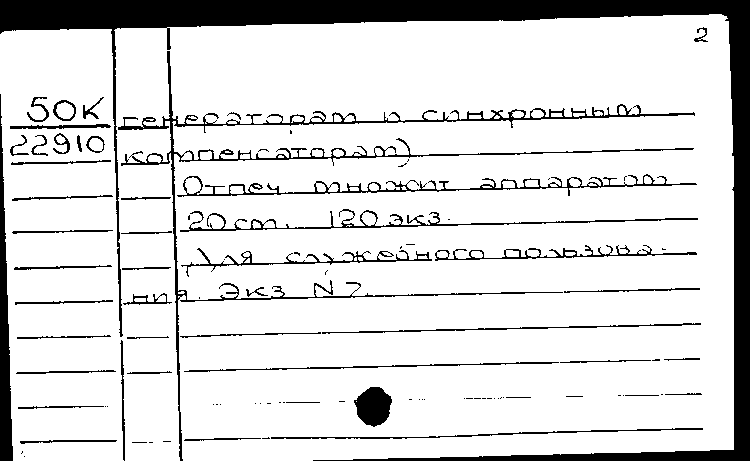 2
50К
22910
генераторам и синхронным
компенсаторам)
Отпеч множит аппаратом
20 ст. 120 экз.
Для служебного пользова-
ния. Экз N 7.